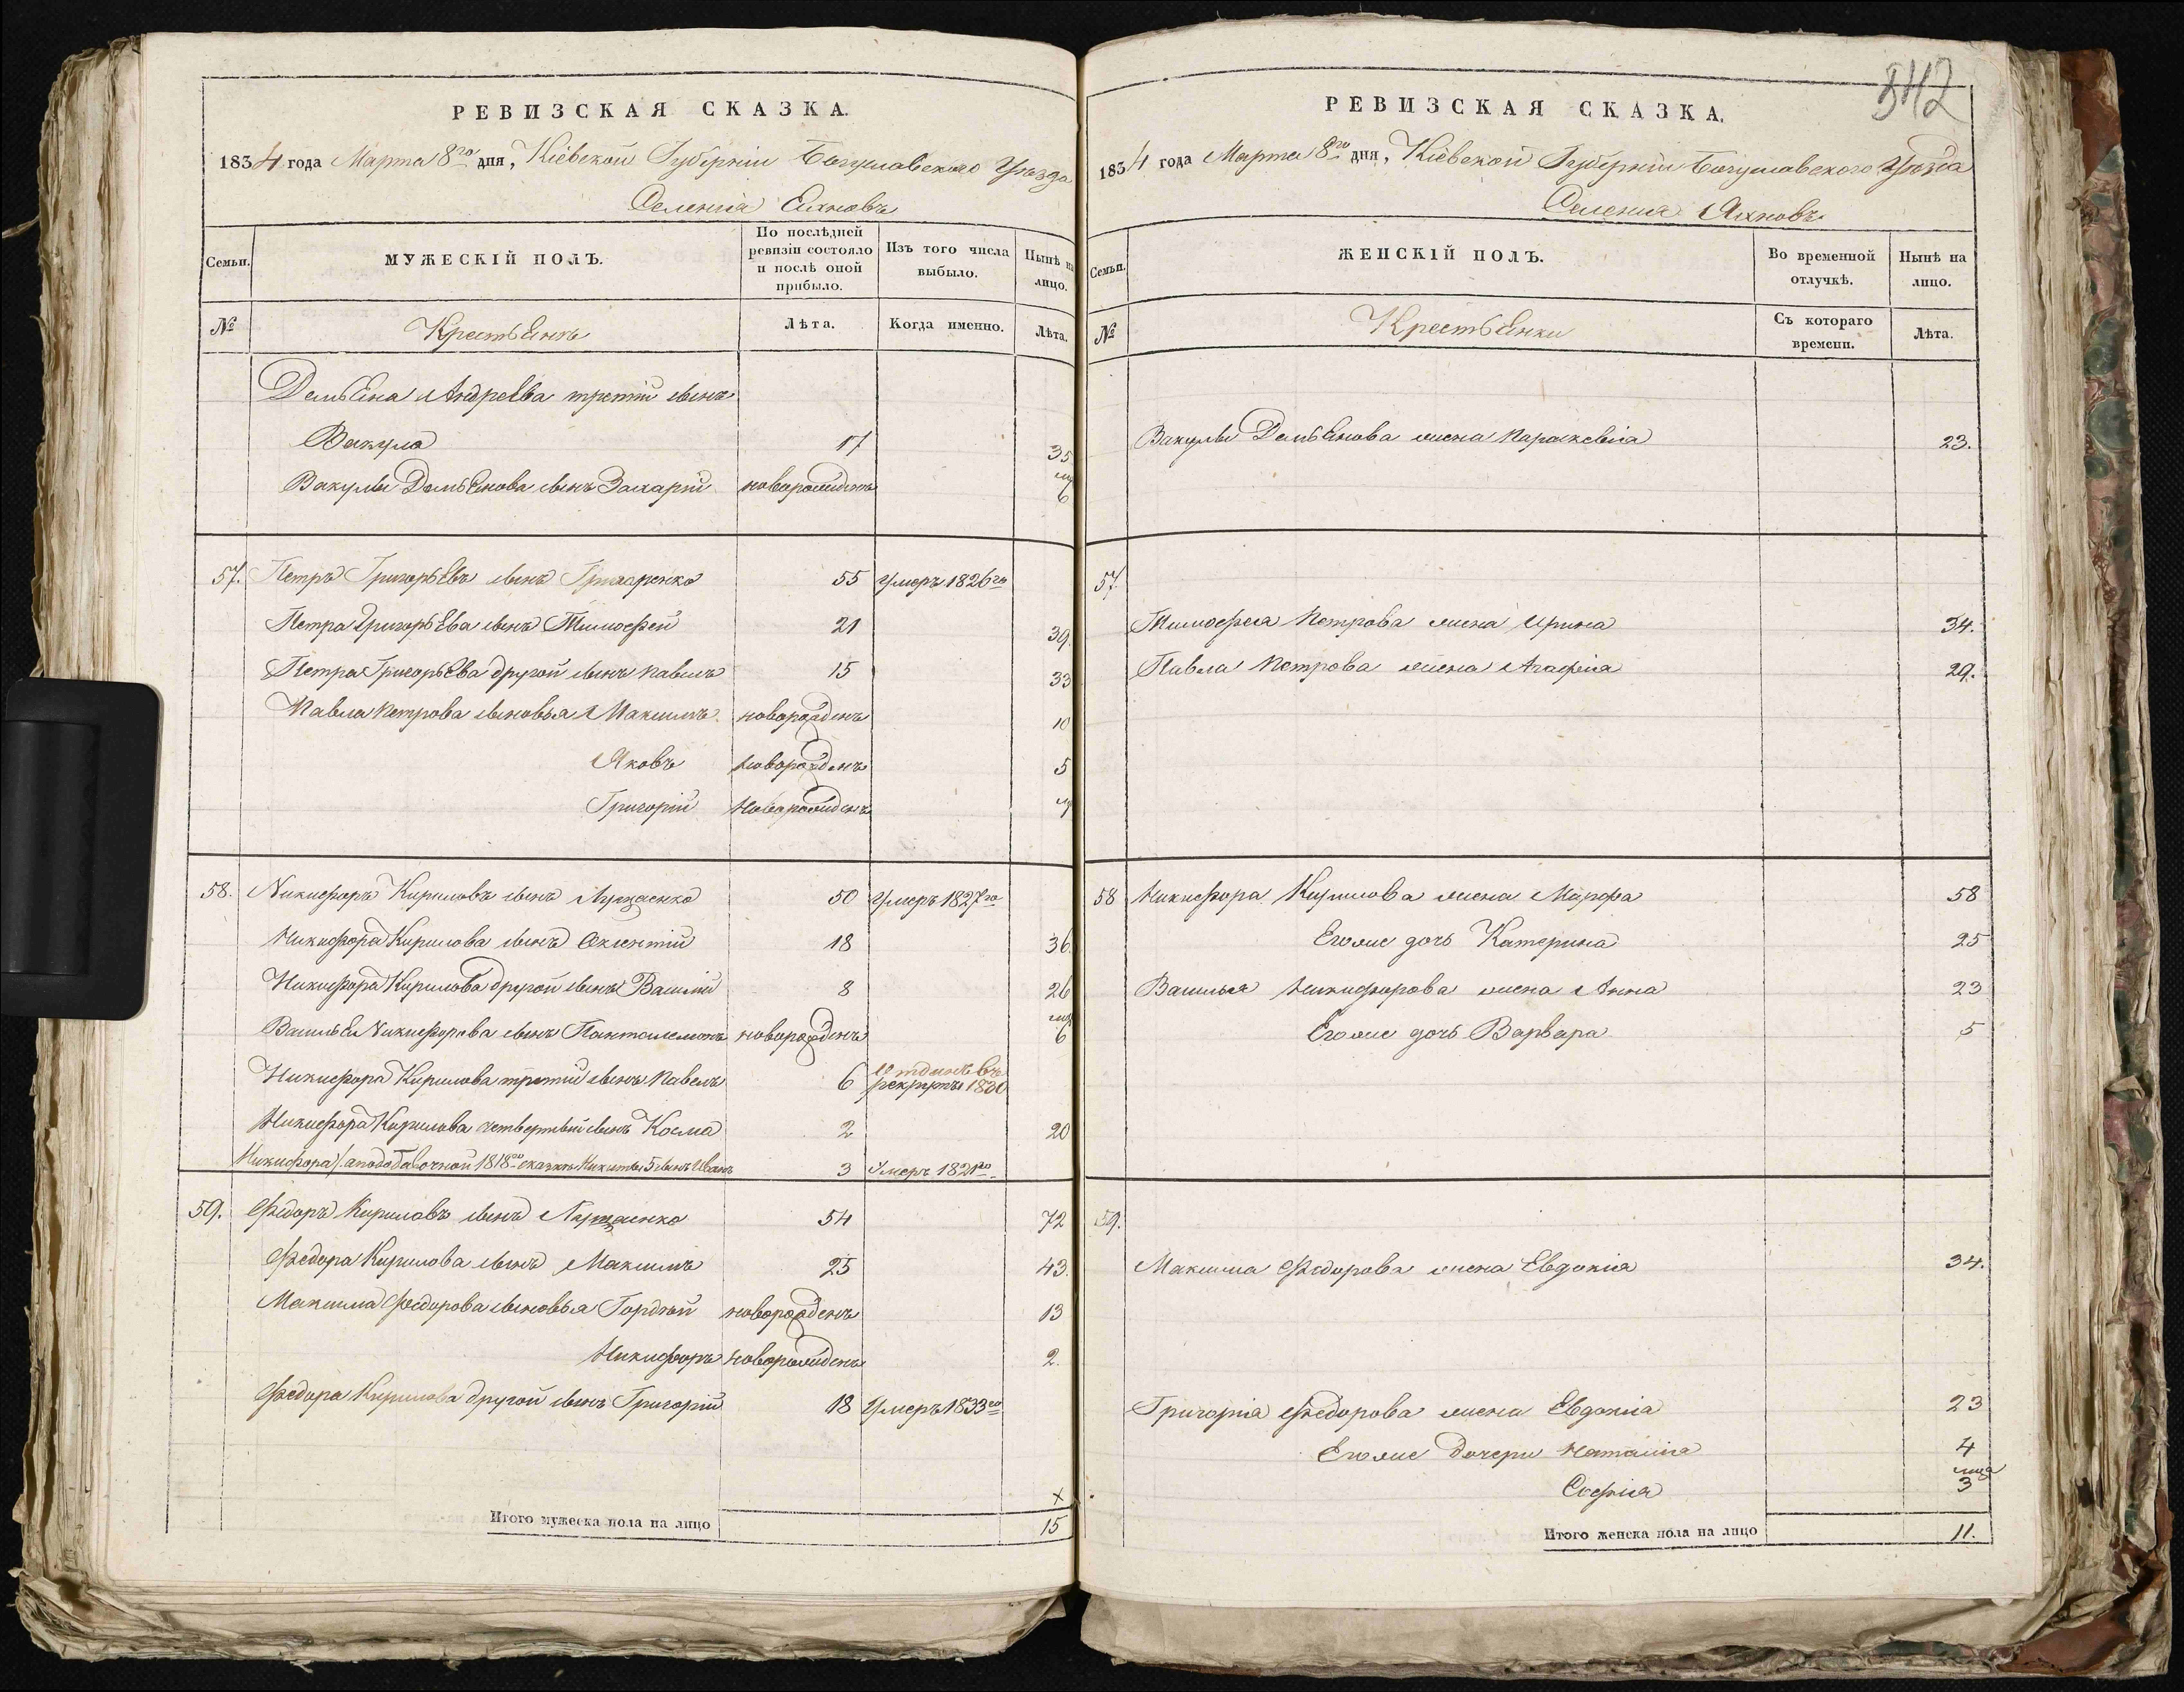 РЕВИЗСКАЯ СКАЗКА.
1834 года Марта 8го дня, Кіевской Губерніи Богуславского Уѣзда
Селенія Яхновъ
Семьи.
МУЖЕСКІЙ ПОЛЪ.
По послѣдней ревизіи состояло и послѣ оной прибыло.
Изъ того числа выбыло.
Нынѣ на лицо.
№
Крестьянъ
Лѣта.
Когда именно.
Лѣта.
Демьяна Андреева третій сынъ
Вакула 17 35
Вакулы Демьянова сынъ Захарій новорожденъ 6
57. Петръ Григорьевъ сынъ 55 умеръ 1826го
Петра Григорьева сынъ Тимофей 21 39.
Петра Григорьева другой сынъ Павелъ 15 33
Павла Петрова сыновья Максимъ новорожденъ 10
Яковъ новорожденъ 5
Григорій новорожденъ
58. Никифоръ Кириловъ сынъ Лущаенко 50 умеръ 1827го
Никифора Кирилова сынъ 18 36.
Никифора Кирилова другой сынъ Василій 8 26
Василья Никифорова сынъ Пантелемонъ новорожденъ 6
Никифора Кирилова третій сынъ Павелъ 6 отданъ въ рекруты 1830
Никифора Кирилова четвертый сынъ Косма 2 20
Никифора 1818го сказкѣ Никиты 5 сынъ Иванъ 3 умеръ 1821го
59. Федоръ Кириловъ сынъ Лущаенко 54 72
Федора Кирилова сынъ Максимъ 25 43.
Максима Федорова сыновья Гордѣй новорожденъ 13
Никифоръ новорожденъ 2.
Федора Кирилова другой сынъ Григорій 18 умеръ 1833го
Итого мужеска пола на лицо 15
542
РЕВИЗСКАЯ СКАЗКА.
1834 года Марта 8го дня, Кіевской Губерніи Богуславского Уѣзда
Селенія Яхновъ
Семьи.
ЖЕНСКІЙ ПОЛЪ.
Во временной отлучкѣ.
Нынѣ на лицо.
№
Крестьянки
Съ котораго времени.
Лѣта.
Вакулы Демьянова жена Параскевія 23.
57.
Тимофея Петрова жена Ирина 34.
Павла Петрова жена Агафія 29.
58 Никифора Кирилова жена Марфа 58
Егожъ дочь Катерина 25
Василья Никифорова жена Анна 23
Егоже дочь Варвара 5
59.
Максима Федорова жена Евдокія 34.
Григорія Федорова жена Евдокія 23
Егоже дочери Наталія 4
Софія 3
Итого женска пола на лицо 11.